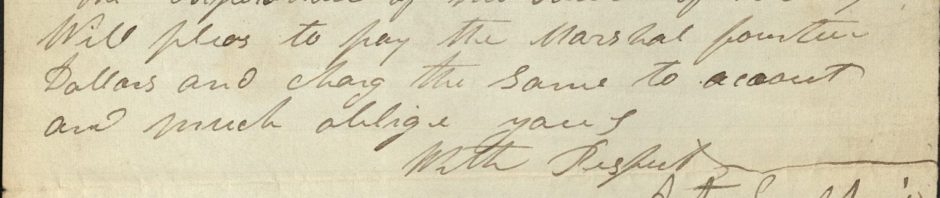 of
Will pleas to pay the Marshal fourteen
Dollars and charg the same to acount
and much oblige yours
With Respect